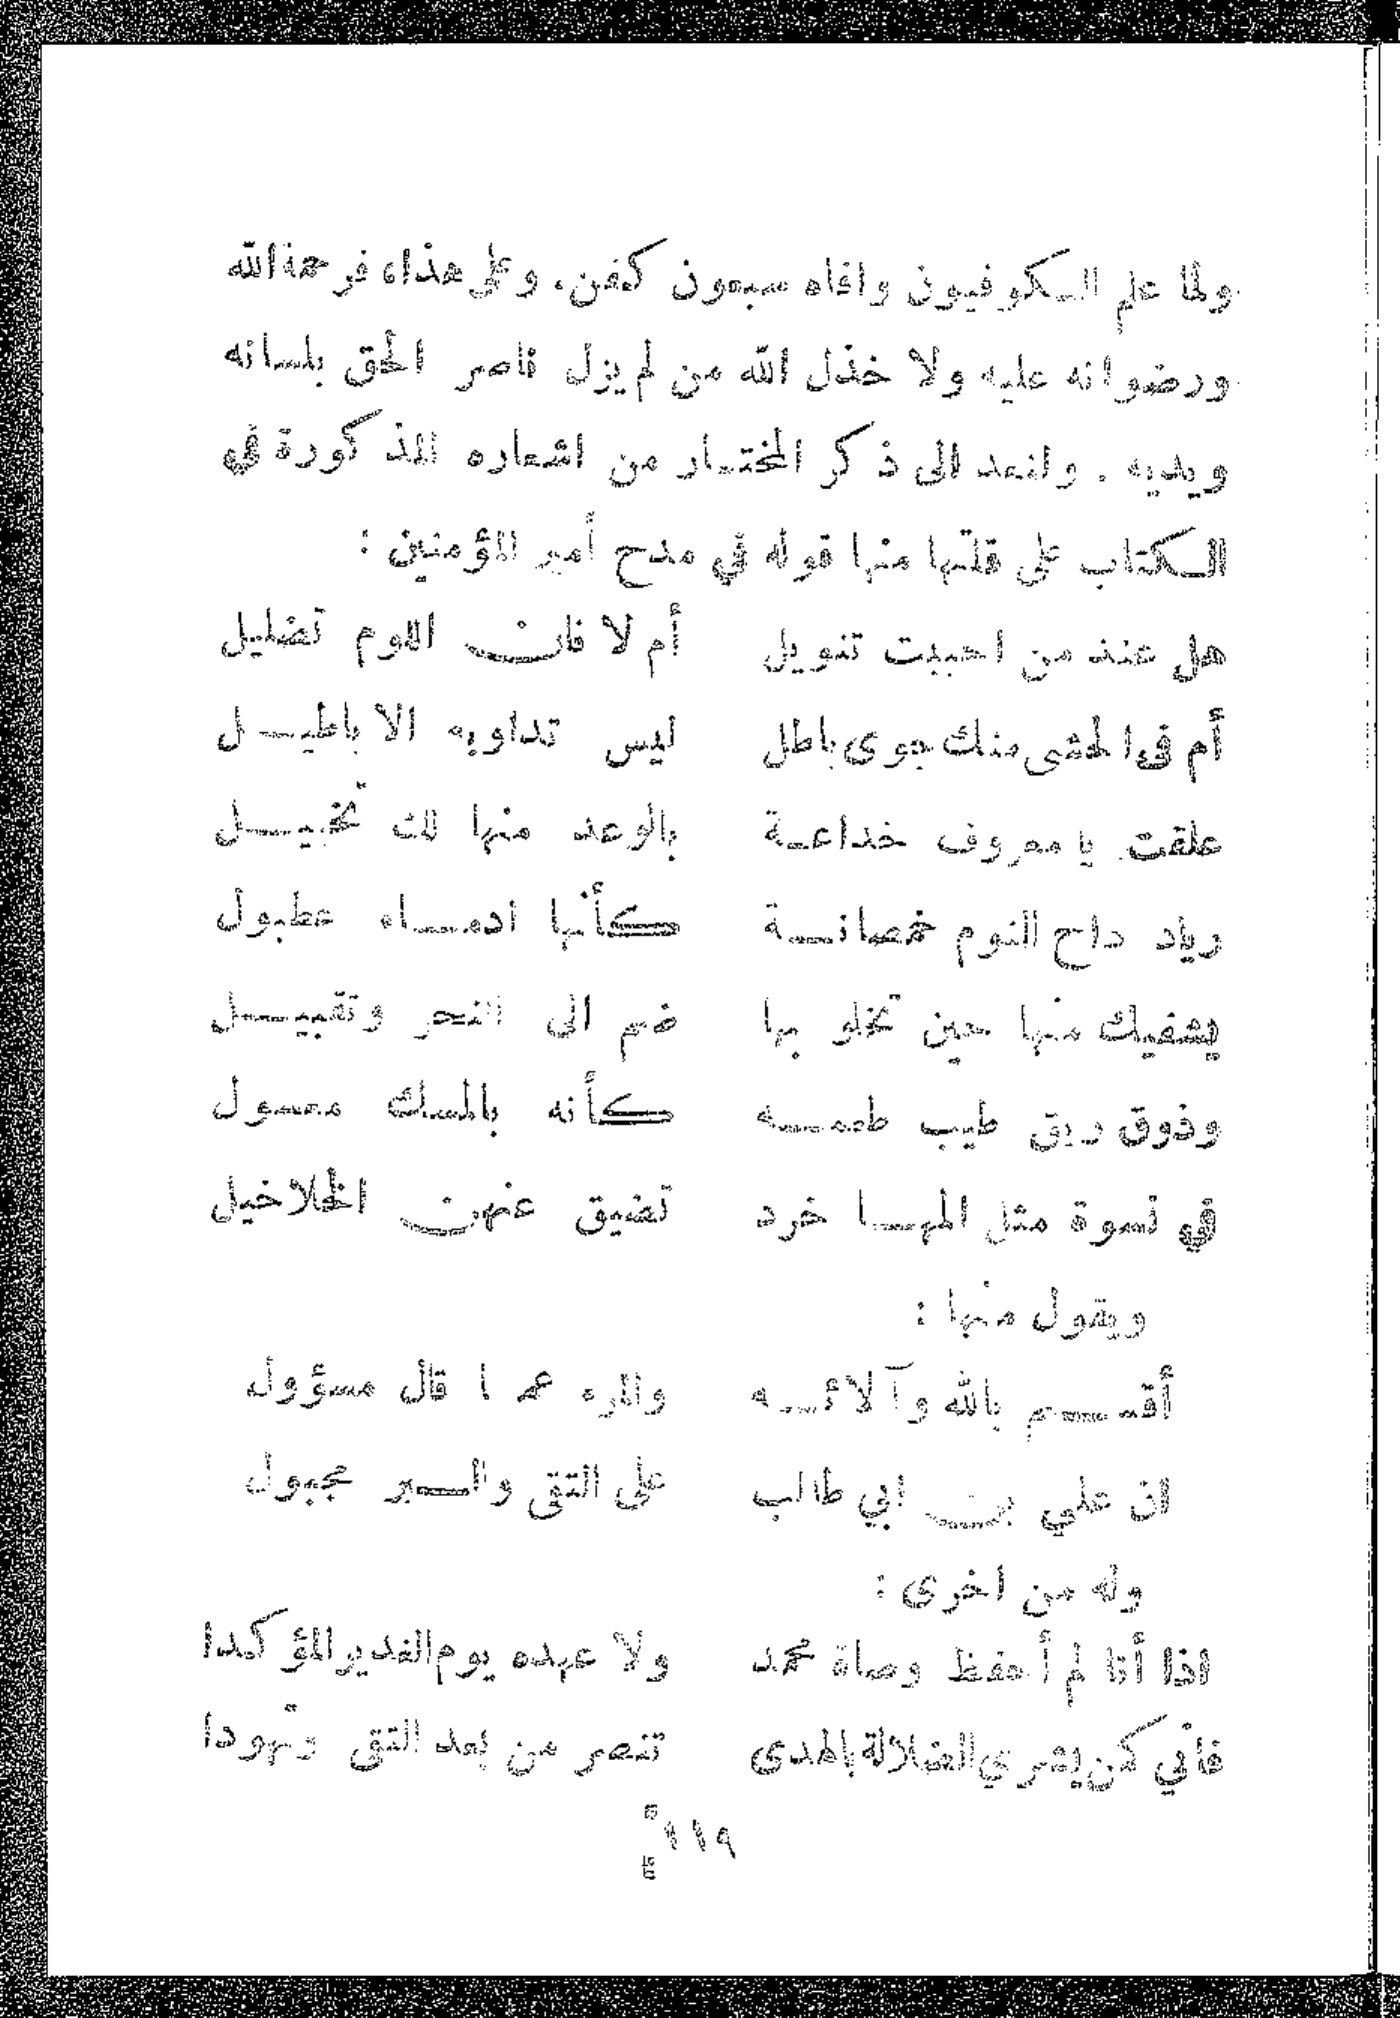 ولما علم الكوفيون وافاه سبعون كفن، وعلى هذا، فرحمة الله
ورضوانه عليه ولا خذل الله من لم يزل ناصر الحق بلسانه
ويديه . ولنعد الى ذكر المختار من اشعاره المذكورة في
الكتاب على قلتها منها قوله في مدح أمير المؤمنين :
هل عند من احببت تنويل أم لا فان اللوم تضليل
أم في الحشى منك جوى باطل ليس تداويه الاباطيل
علقت يا معروف خداعة بالوعد منها لك تخييل
رياد داح النوم خمصانة كأنها ادماء عطبول
يشفيك منها حين تخلو بها ضم الى النحر وتقبيل
وذوق ريق طيب طعمه كأنه بالمسك معسول
في نسوة مثل المها خرد تضيق عنهن الخلاخيل
ويقول منها :
أقسم بالله وآلائه والمرء عما قال مسؤول
ان علي بن ابي طالب على التقى والبر مجبول
وله من اخرى :
اذا أنا لم أحفظ وصاة محمد ولا عهده يوم الغدير المؤكدا
فاني كمن يشري الضلالة بالهدى تنصر من بعد التقى وتهودا
١١٩